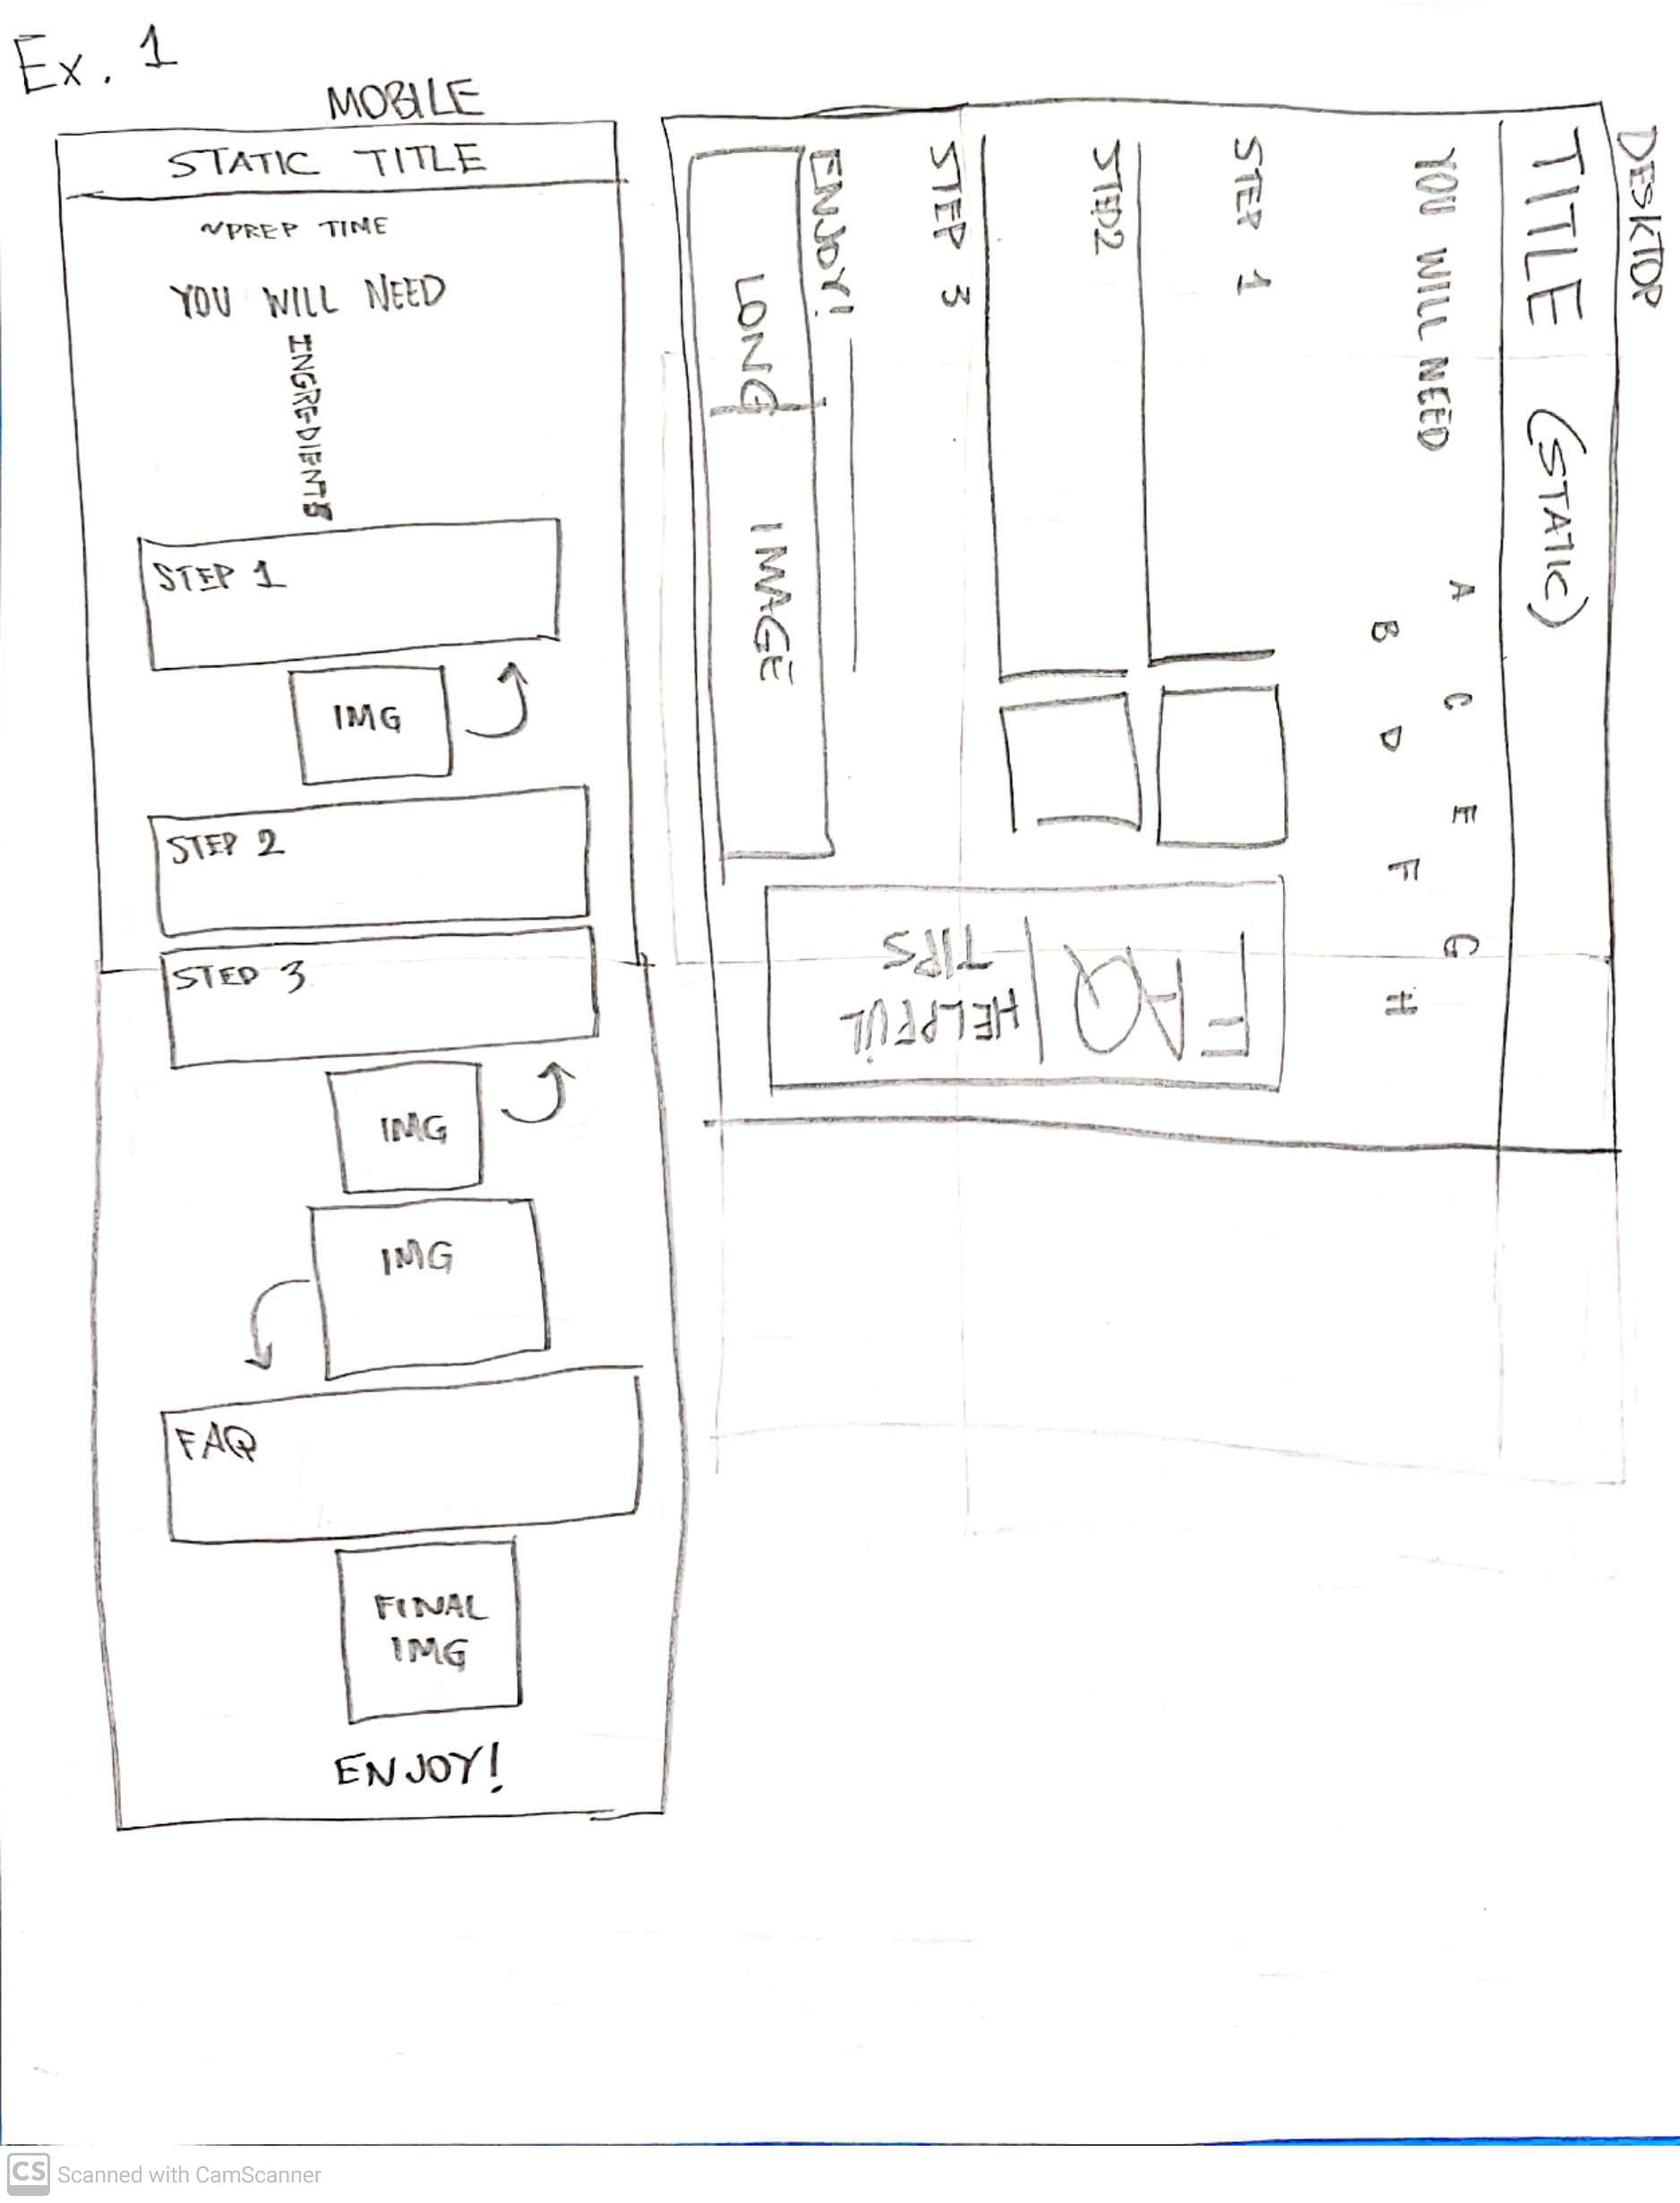 Ex. 1
MOBILE
STATIC TITLE
~PREP TIME
YOU WILL NEED
INGREDIENTS
STEP 1
IMG
STEP 2
STEP 3
IMG
IMG
FAQ
FINAL
IMG
ENJOY!
DESKTOP
TITLE (STATIC)
YOU WILL NEED
A C E G
B D F H
STEP 1
STEP 2
STEP 3
ENJOY!
LONG IMAGE
FAQ
HELPFUL
TIPS
CS Scanned with CamScanner